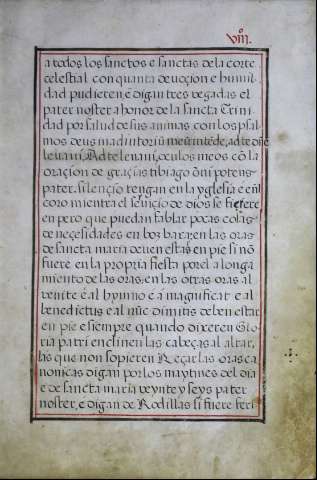 viii.
a todos los sanctos e sanctas de la corte
celestial con quanta devoçion e humil
dad pudieren, e digan tres vegadas el
pater noster a honor de la sancta Trini
dad por salud de sus animas con los psal
mos deus in adiutoriũ meũ intẽde, ad te dñe
levavi, Ad te levavi, oculos meos cõ la
oraçion de graçias tibi ago õnipotens
pater. silençio tengan en la yglesia e en l
coro mientra el serviçio de dios se
en pero que puedan fablar pocas cosas
de neçesidades en boz baxa, en las oras
de sancta maria deven estar en pie si nõ
fuere en la propria fiesta por el alonga
miento de las oras, en las otras oras al
venite e al hymno e a magnificat e al
benedictus e al nũc dimitis deben estar
en pie e siempre quando dixeren Glo
ria patri enclinen las cabeças al altar,
las que non sopieren Reçar las oras ca
nonicas digan por los maytines del dia
e de sancta maria veynte y seys pater
noster, e digan de Rodillas si fuere feri